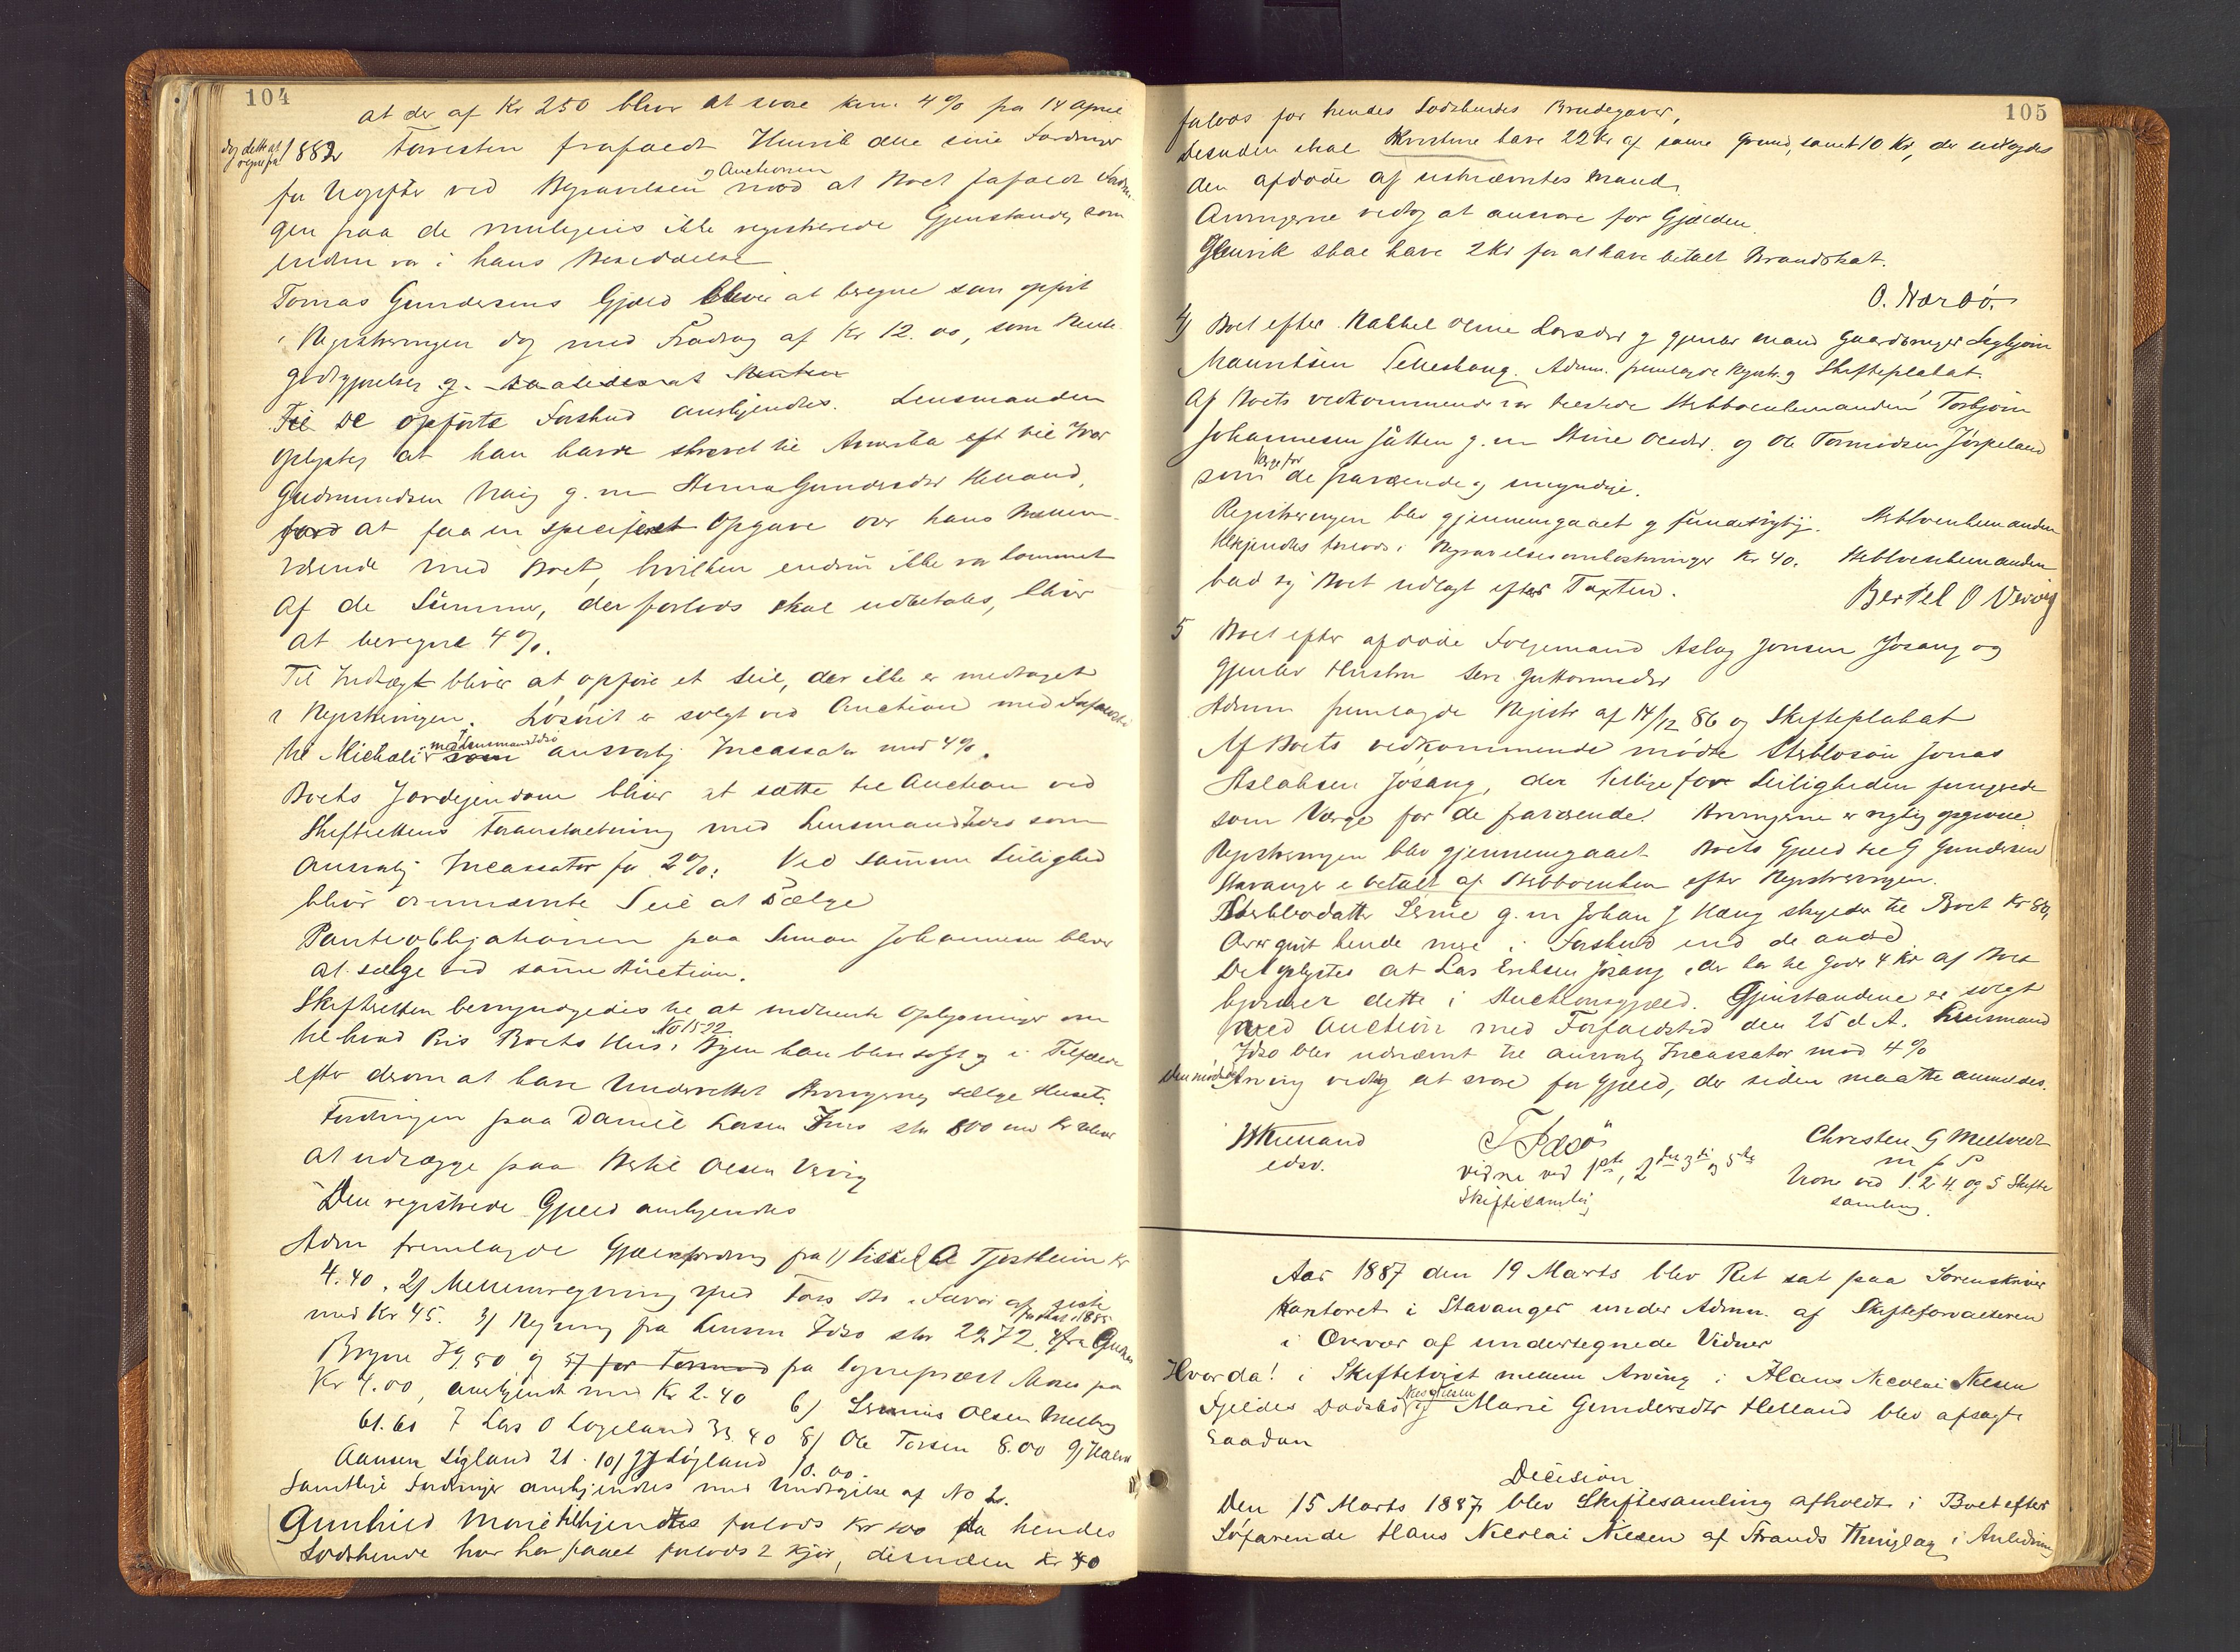 104
at der af Kr 250 bliver at svare kun 4% fra 14 April
dog dette at
regne fra 1882 Forresten frafaldt Henrik alle sine Fordringer
og Auctionen
for Udgifter ved Begravelsen mod at Boet frafaldt Fordrin-
gen paa de muligens ikke registrerede Gjenstande, som
endnu var i hans Besiddelse
Tomas Gundersens Gjæld bliver at beregne som opført
i Registreringen dog med Fradrag af Kr 12.00, som Rente
godtgjørelse
De opførte Forskud anerkjendtes. Lensmanden
oplyste, at han havde skrevet til Amerika eft til Ivar
Gudmundsen Haig g. m Anna Gundersdtr Helland,
for at faa en specificeret Opgave over hans Mellem-
værende med Boet, hvilken endnu ikke var kommet
Af de Summer, der forlods skal udbetales, bliver
at beregne 4%.
Til Indtægt bliver at opføre et Seil, der ikke er medtaget
i Registreringen. Løsøret er solgt ved Auction med Forfaldstid
til Michaeli med Lensmand Idsø som ansvarlig Incassator mod 4%.
Boets Jordejendom bliver at sætte til Auction ved
Skifterettens Foranstaltning med Lensmand Idsø som
ansvarlig Incassator for 2%. Ved samme Leilighed
bliver ovennævnte Seil at sælge
Panteobligationen paa Simon Johannesen bliver
at sælge ved samme Auction.
Skifteretten bemyndigedes til at indhente Oplysninger om
No 1522
til hvad Pris Boets Hus i Byen kan blive solgt og i Tilfælde
efter derom at have underrettet Arvingerne, sælge Huset.
Fordringen paa Daniel Larsen stor 800 Kr bliver
at udlægge paa Bertil Olsen Vervig
Den registrerede Gjæld anerkjendtes
Adm fremlagde Gjældsfordring fra 1) Sissel Tjøstheim Kr
4.40. 2) Mellemregning med
med Kr 45. 3) Regning fra Lensm Idsø stor 29.72 4) fra
Bryne 79,50 og 5) for Tormod fra Sognepræst
Kr 4.00, anerkjendt med Kr 2.40 6) Olsen
61.61 7 Lars O Løgeland 33.40 8) Ole Torsen 8.00 9)
Aansen Løgland 21. 10) Løgland 10.00
Samtlige Fordringer anerkjendtes med Undtagelse af No 2.
Gunhild Marie tilkjendtes forlods Kr 100 da hendes
Sødskende har har faaet forlods 2 Kjør, desuden Kr 40
105
forlods for hendes Sødskendes Brudegaver,
Desuden skal Kristine have 22 Kr af samme Grund, samt 10 Kr, der
den afdøde af ustnævntes Mand
Arvingerne vedtog at ansvare for Gjælden.
Henrik skal have 2 Kr for at have betalt Brandskat.
O. Nærbø.
4) Boet efter Rakkel Oline Larsdtr og gjenlev Mand Gaardbruger Segbjørn
Mauritsen Selleshaug. Adm. fremlagde Registr. og Skifteplakat.
Af Boets vedkommende var tilstede Sterboenkemanden Torbjørn
Johannesen Jåtten g. m Stine Olsdtr. og Ole Tormodsen Jørpeland
Verge for
som de fraværende og umyndige.
Registreringen blev gjennemgaaet og funden rigtig. Sterboenkemanden
tilkjendtes forlods i Begravelsesomkostninger Kr 40. Sterboenkemanden
bad sig Boet udlagt efter Taxten.
Bertel O Vervig
5 Boet efter afdøde Folgemand Aslag Jonsen Jøsang og
gjenlev Hustru Seri Guttormsdtr
Adm fremlagde Registr af 14/12 86 og Skifteplakat
Af Boets vedkommende mødte Sterbosøn Jonas
Aslaksen Jøsang, der tillige for Leiligheden fungerede
som Værge for de fraværende. Arvingerne er rigtig opgivne.
Registreringen blev gjennemgaaet Boets Gjæld til G Gundersen
Stavanger er betalt af Sterboenken efter Registreringen.
Sterbodatter Serine g. m Johan J Haug skylder til Boet Kr 80,
Over givet hende mere i Forskud end de andre
Det oplystes at Lars Eriksen Jøsang, der har til Gode 4 Kr af Boet
hjemler dette i Auctionsgjæld. Gjenstandene er solgt
ved Auction med Forfaldstid den 25 d. A. Lensmand
Idsø blev udnævnt til ansvarlig Incassator mod 4%
Den mødte Arving vedtog at svare for Gjæld, der siden maatte anmeldes.
Kielland
edsv.
T Idsö
vidne ved 1ste, 2den 3die og 5te
Skiftesamling
Christen G Meltvedt
m p P
Vidne ved 1. 2 4. og 5 Skifte
samling.
Aar 1887 den 19 Marts blev Ret sat paa Sorenskriver
Kontoret i Stavanger under Admn. af Skifteforvalteren
i Overvær af undertegnede Vidner
Hvorda! i Skiftetvist mellem Arving i Hans Nicolai Nilsen
Fjeldes Dødsbo, og Marie Gundersdtr Helland blev afsagt
saadan
Decision
Den 15 Marts 1887 blev Skiftesamling afholdt i Boet efter
Søfarende Hans Nicolai Nilsen af Strands Thinglag i Anledning